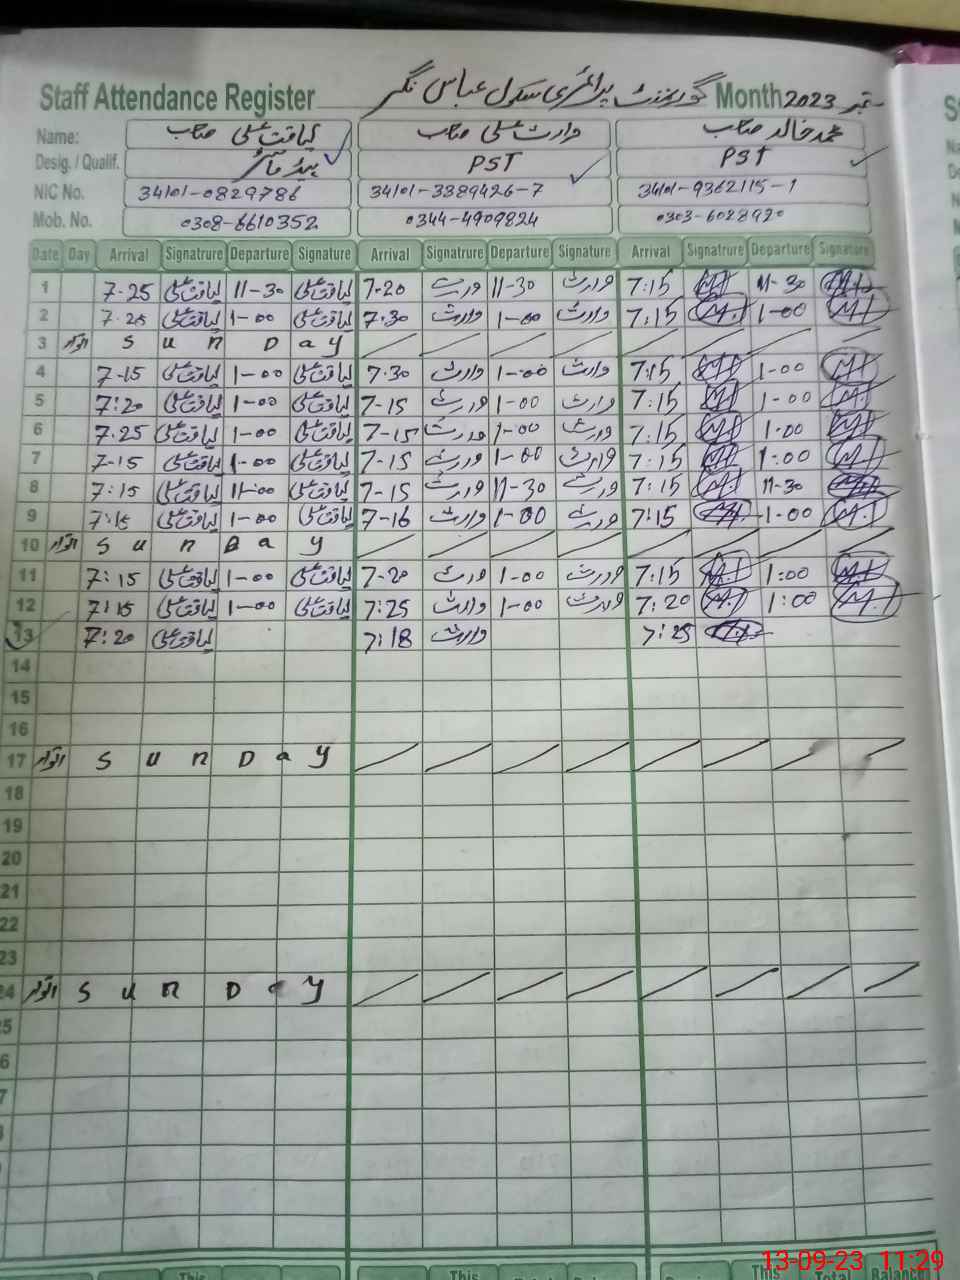 Staff Attendance Register گورنمنٹ پرائمری سکول عباس نگر Month ستمبر 2023
Name: لیاقت علی صاحب وارث علی صاحب محمد خالد صاحب
Desig. / Qualif. ہیڈ ماسٹر PST PST
NIC No. 34101-0829786 34101-3389426-7 34101-9362115-1
Mob. No. 0308-6610352 0344-4909824 0303-6028920
Date Day Arrival Signatrure Departure Signature Arrival Signatrure Departure Signature Arrival Signatrure Departure Signature
1 7-25 لیاقت علی 11-30 لیاقت علی 7-20 وارث 11-30 وارث 7:15 11-30
2 7-25 لیاقت علی 1-00 لیاقت علی 7-30 وارث 1-00 وارث 7:15 M.I 1-00 M.I
3 اتوار S u n D a y
4 7-15 لیاقت علی 1-00 لیاقت علی 7-30 وارث 1-00 وارث 7:15 1-00
5 7:20 لیاقت علی 1-00 لیاقت علی 7-15 وارث 1-00 وارث 7:15 1-00
6 7:25 لیاقت علی 1-00 لیاقت علی 7-15 وارث 1-00 وارث 7:15 1:00
7 7-15 لیاقت علی 1-00 لیاقت علی 7-15 وارث 1-00 وارث 7:15 1:00
8 7:15 لیاقت علی لیاقت علی 7-15 وارث 11-30 وارث 7:15 11-30
9 7:15 لیاقت علی 1-00 لیاقت علی 7-16 وارث 1-00 وارث 7:15 1-00
10 اتوار S u n D a y
11 7:15 لیاقت علی 1-00 لیاقت علی 7-20 وارث 1-00 وارث 7:15 1:00
12 7:15 لیاقت علی 1-00 لیاقت علی 7:25 وارث 1-00 وارث 7:20 M.I 1:00 M.I
13 7:20 لیاقت علی 7:18 وارث 7:25
14
15
16
17 اتوار S u n D a y
18
19
20
21
22
23
24 اتوار S u n D a y
5
6
7
This This Total Balance
13-09-23 11:29